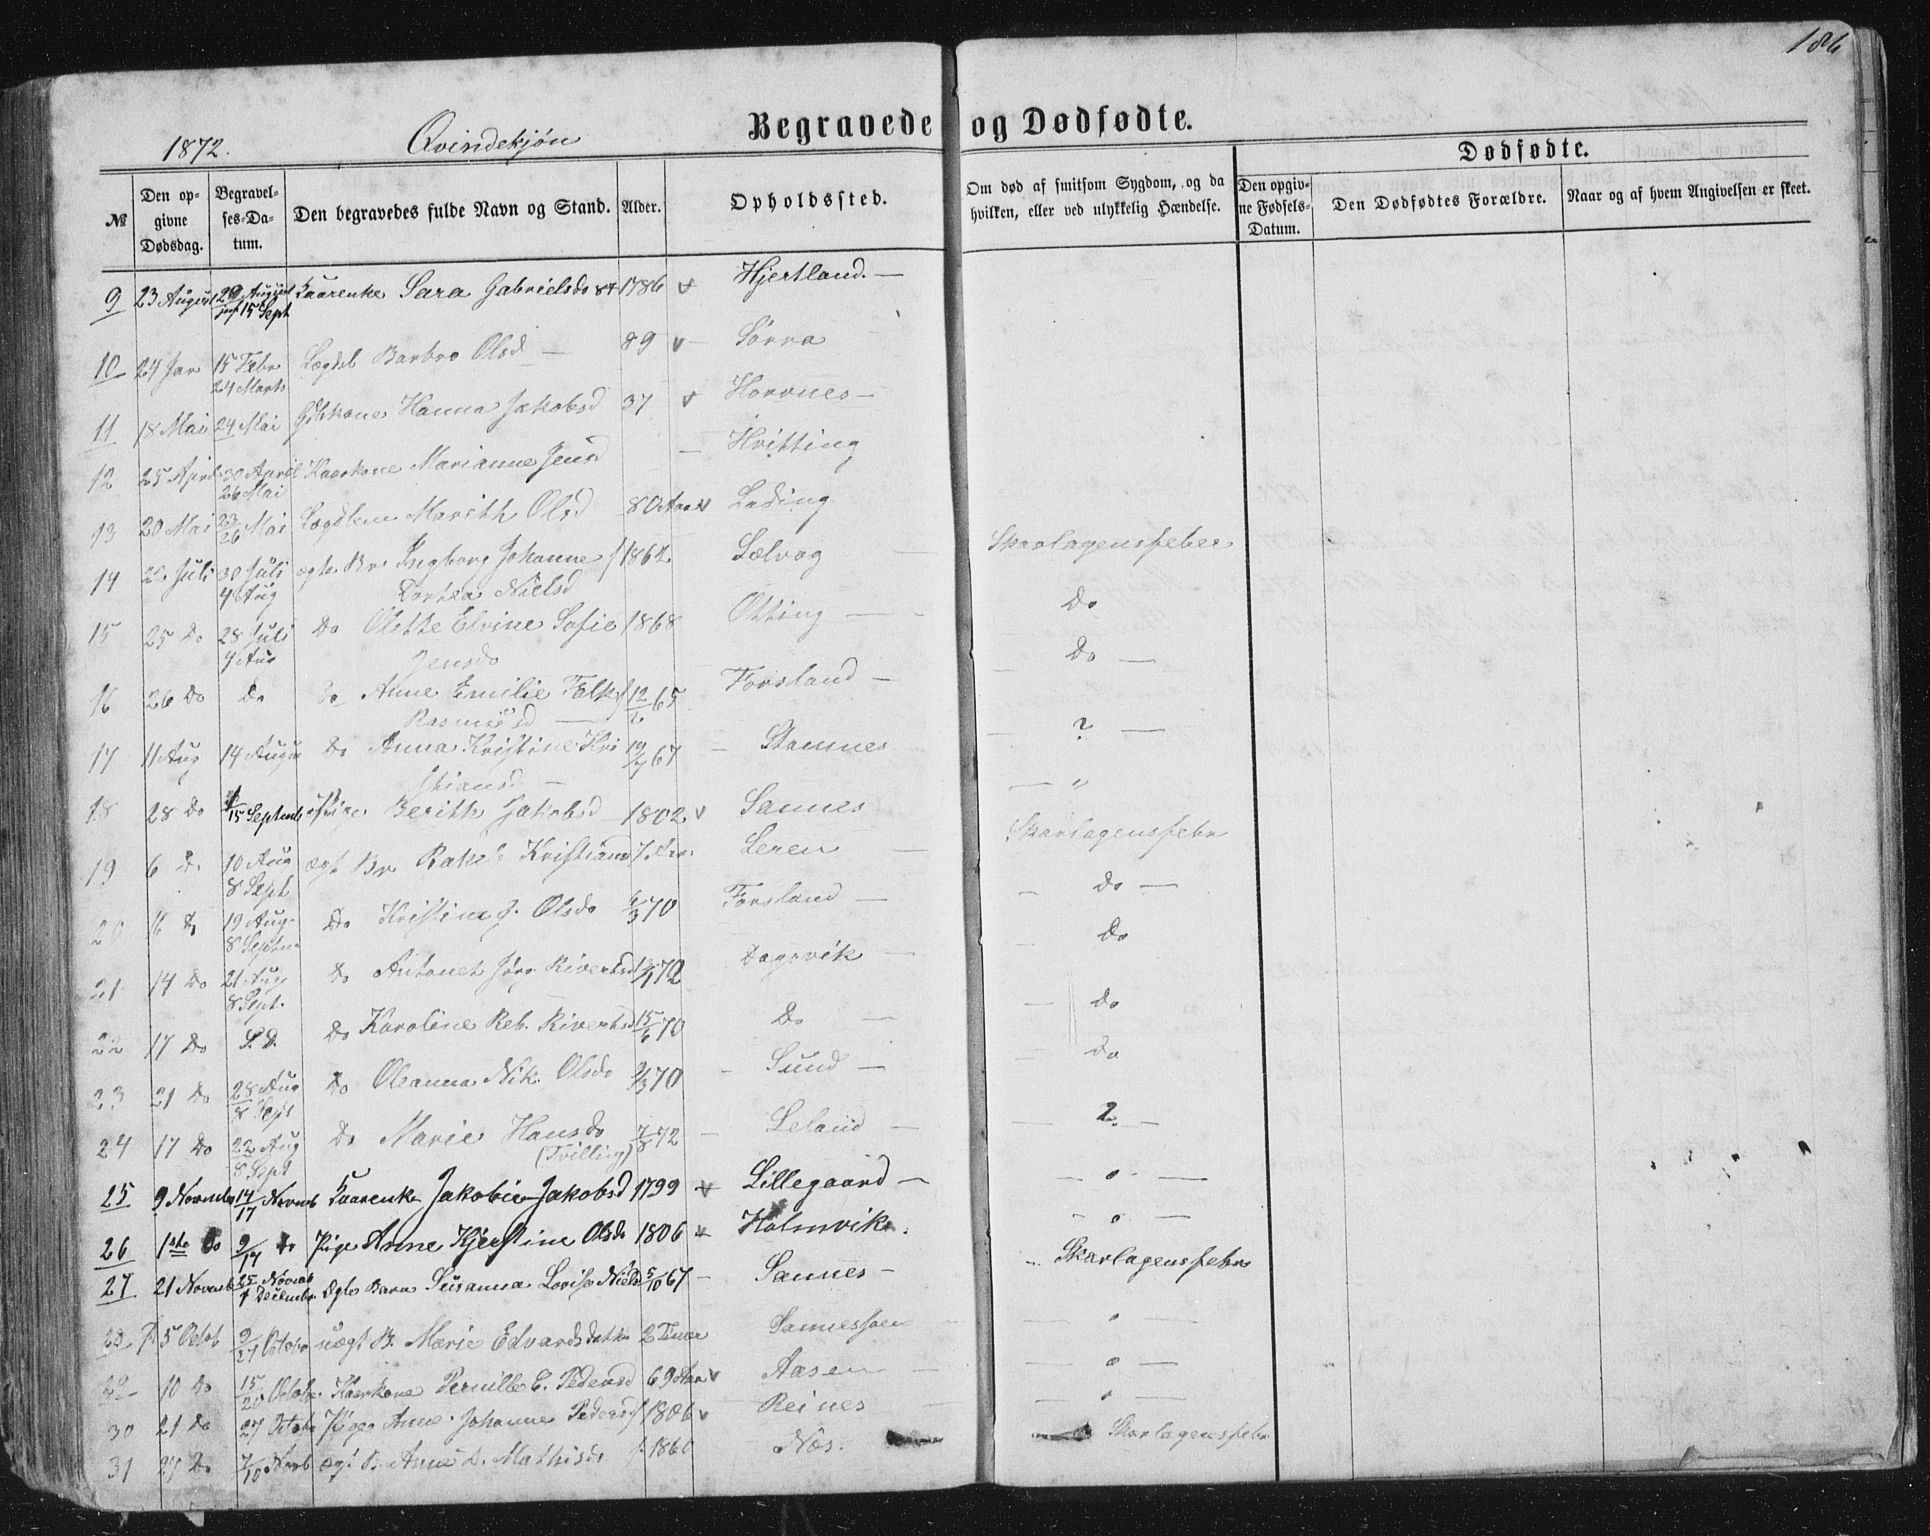 186
1872. Qvindekjøn Begravede og Dødfødte.
Dødfødte.
№ Den opgivne Dødsdag. Begravelses-Datum. Den begravedes fulde Navn og Stand. Alder. Opholdssted. Om død af smitsom Sygdom, og da hvilken, eller ved ulykkelig Hændelse. Den opgivne Fødsels-Datum. Den Dødfødtes Forældre. Naar og af hvem Angivelsen er skeet.
9 23 August 29 August 15 Sept Kaarenke Sara Gabrielsd 1786 Hjertland. —
10 24 Jan 15 Febr 24 Marts Lægdsl Barbro Olsd — 89 Sørra
11 18 Mai 24 Mai Hanna Jakobsd 37 Hornes —
12 25 April 30 April 26 Mai Kaarkone Marianne Jensd — Hvitting
13 20 Mai 23/26 Mai Lægdlem Mareth Olsd 80 Aar Leding
14 Juli 30 Juli 4 Aug ægte Br Ingborg Johanne Dorthea Nielsd f 1862 Sælvag Skarlagensfeber
15 25 Do 28 Juli 4 Aug Do Olette Elvine Sofie Jensdo 1868 Otting — Do
16 26 Do Do Do Anne Emilie Falk Rasmusd — 12/6 65 Forsland — Do —
17 11 Aug 14 Augu Do Anna Kristine Kristiansd — 19/7 67 — Stamnes ? —
18 28 Do 1/15 Septemb Berith Jakobsd 1802 Sannes — "
19 6 Do 10 Aug 8 Sept ægt Br Rakel Kristiansd 7 Aar Leren — Skarlagensfebr
20 16 Do 19 Aug. 8 Septem Do Kristine J. Olsdo 6/3 70 Forsland — Do —
21 14 Do 21 Aug 8 Sept. Do Antonet Jørg Rivertsd 72 Dagsvik — Do
22 17 Do D. D. Do Karoline Reb. Rivertsd 15/6 70 Do — Do
23 21 Do 28 Aug 8 Sept Do Oleanna Nik. Olsdo 9/3 70 — Sund — Do
24 17 Do 22 Aug 8 Sept Do Marie Hansdo (Tvilling) 7/8 72 — Leland — ? —
25 9 Novemb 14/17 Novmb Kaarenke Jakobie Jakobsd 1799 Lillegaard — " —
26 1ste Do 9/17 Do Pige Anne Kjerstine Olsdo 1806 Holmvik. " —
27 21 Novemb 25 Novmb 1 Decembr Ægte Barn Susanna Lovise Nielsd 5/10 67 — Sannes — Skarlagensfebr
28 5 Octob 9/27 Octobr uægt B. Marie Edvardsdatte 2 Timer Sannessøen — " —
29 10 Do 15/20 Octobr. Kaarkone Pernille E. Pedersd 69 Aar Aasen — " —
30 21 Do 27 Octobr Pige Anne Johanne Pedersd f 1806 Reines — " —
31 27 Do 7/10 Novb ægt B. Anne D. Mathisdo f. 1860 Næs. Skarlagensfebr